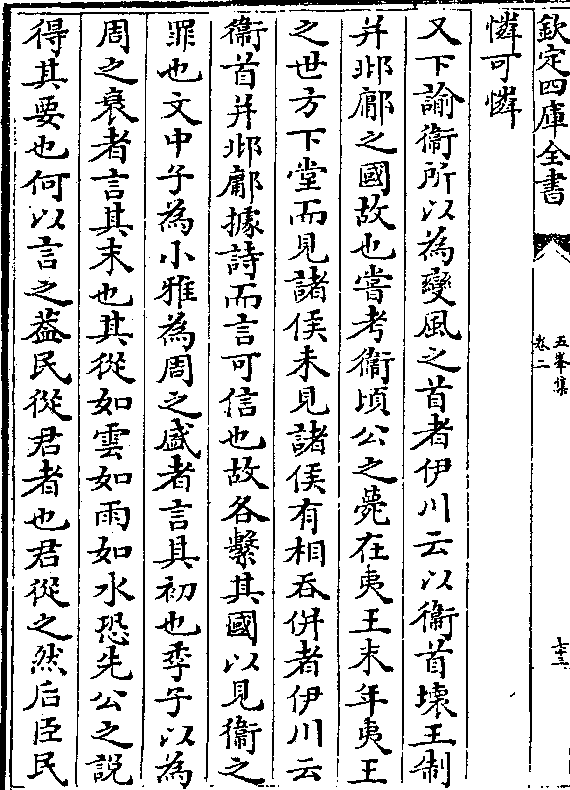 欽定四庫全書
五峯集
卷二
十三
憐可憐
又下諭衞所以為變風之首者伊川云以衞首壞王制
并邶鄘之國故也嘗考衞頃公之薨在夷王末年夷王
之世方下堂而見諸侯未見諸侯有相吞併者伊川云
衞首并邶鄘據詩而言可信也故各繫其國以見衞之
罪也文中子為小雅為周之盛者言其初也季子以為
周之衰者言其末也其從如雲如雨如水恐先公之説
得其要也何以言之葢民從君者也君從之然后臣民